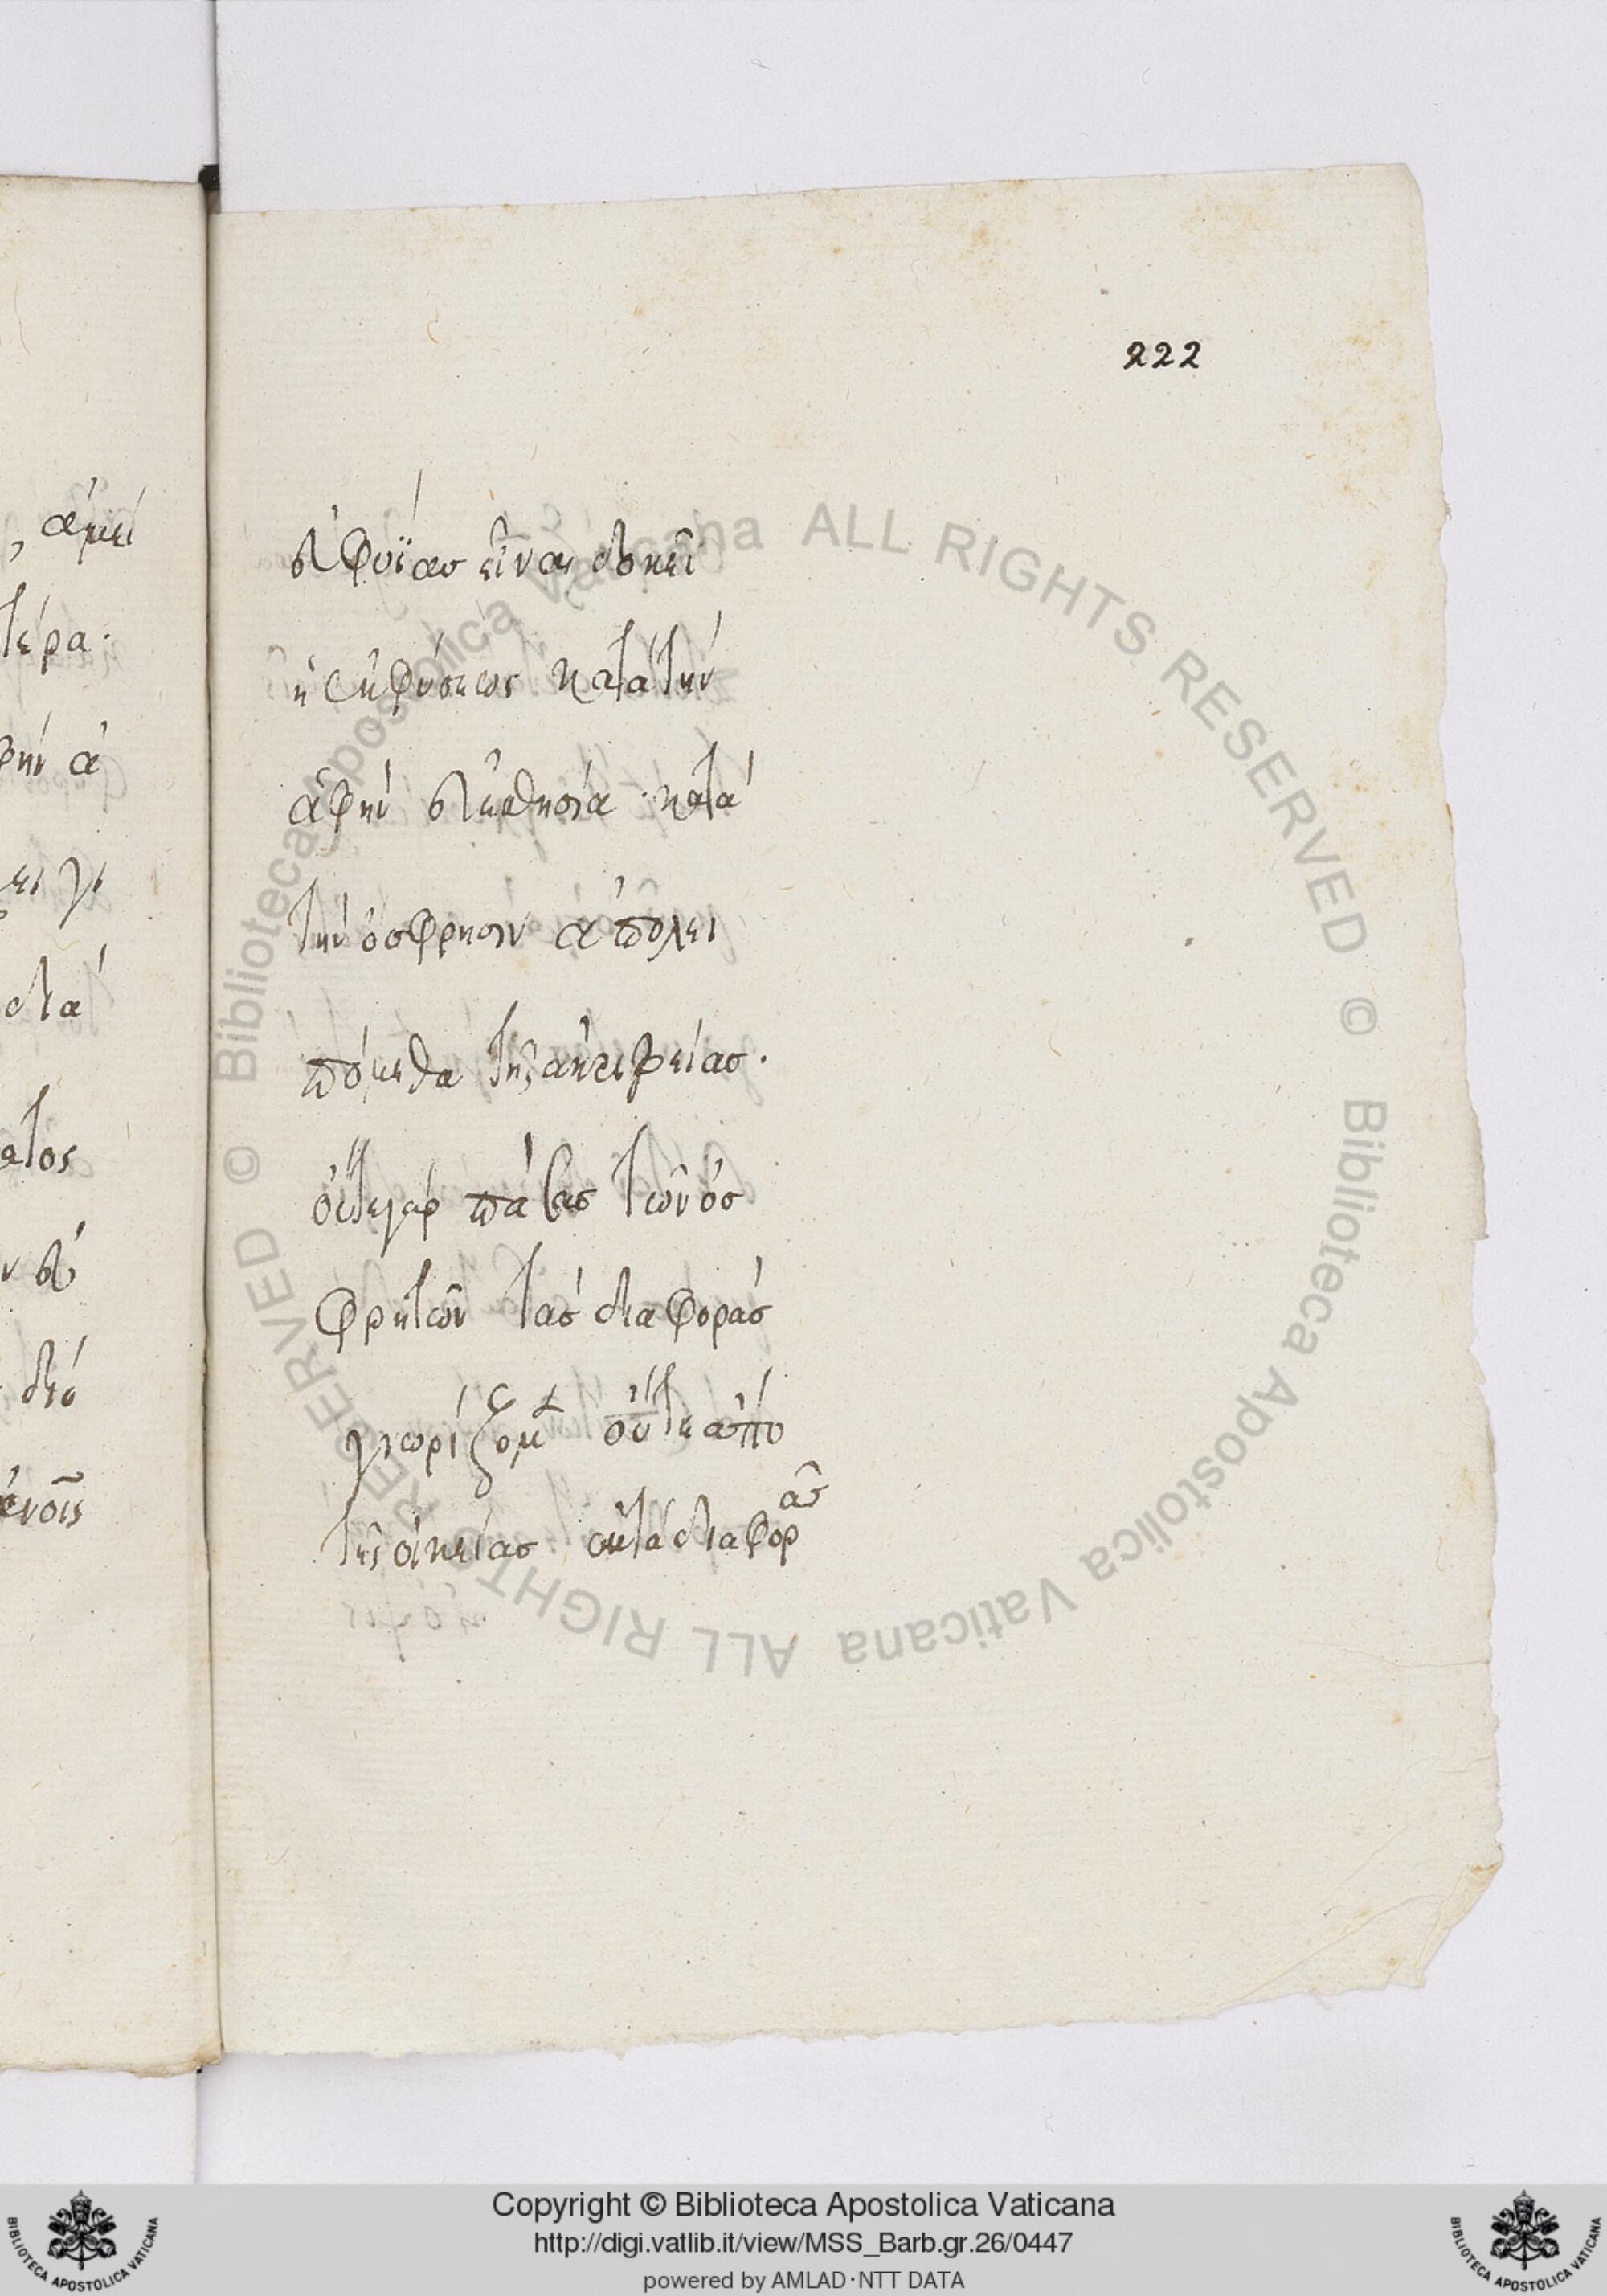 222
, ἀμεί
τέρα·
φὴν ἀ
διὰ
ατος
διό
ένοις
εὐφυΐας εἶναι δοκεῖ
ἡ εὐφύσεως κατὰ τὴν
ἁφὴν εὐαισθησία· κατὰ
τὴν ὄσφρησιν ἀπολει
πόμεθα τῆς ἀκριβείας·
οὔτε γὰρ πάσας τῶν ὀσ
φρητῶν τὰς διαφορὰς
γνωρίζομεν οὔτε ἀπὸ
τῆς οἰκείας διαφορᾶς
© Biblioteca Apostolica Vaticana ALL RIGHTS RESERVED © Biblioteca Apostolica Vaticana ALL RIGHTS RESERVED
Copyright © Biblioteca Apostolica Vaticana
http://digi.vatlib.it/view/MSS_Barb.gr.26/0447
powered by AMLAD·NTT DATA
BIBLIOTECA APOSTOLICA VATICANA
BIBLIOTECA APOSTOLICA VATICANA